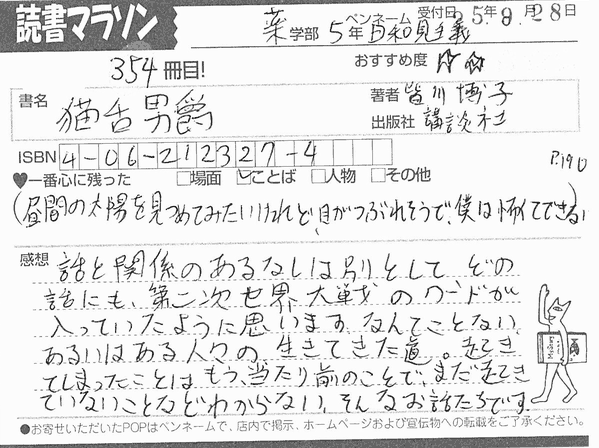 読書マラソン
薬学部 5年 ペンネーム 日和見主義 受付日 05年9月28日
354冊目! おすすめ度 ☆☆
書名 猫舌男爵
著者 皆川 博子
出版社 講談社
ISBN 4-06-212327-4
♥一番心に残った □場面 ☑ことば □人物 □その他 P.190
(昼間の太陽を見つめてみたいけれど、目がつぶれそうで、僕は怖くてできない)
感想 話と関係のあるなしは別として どの
話にも、第二次世界大戦のワードが
入っていたように思います。なんてことない、
あるいはある人々の、生きてきた道。起き
てしまったことはもう、当たり前のことで、まだ起き
ていないことなどわからない、そんなお話たちです。
●お寄せいただいたPOPはペンネームで、店内で掲示、ホームページおよび宣伝物への転載をご了承ください。